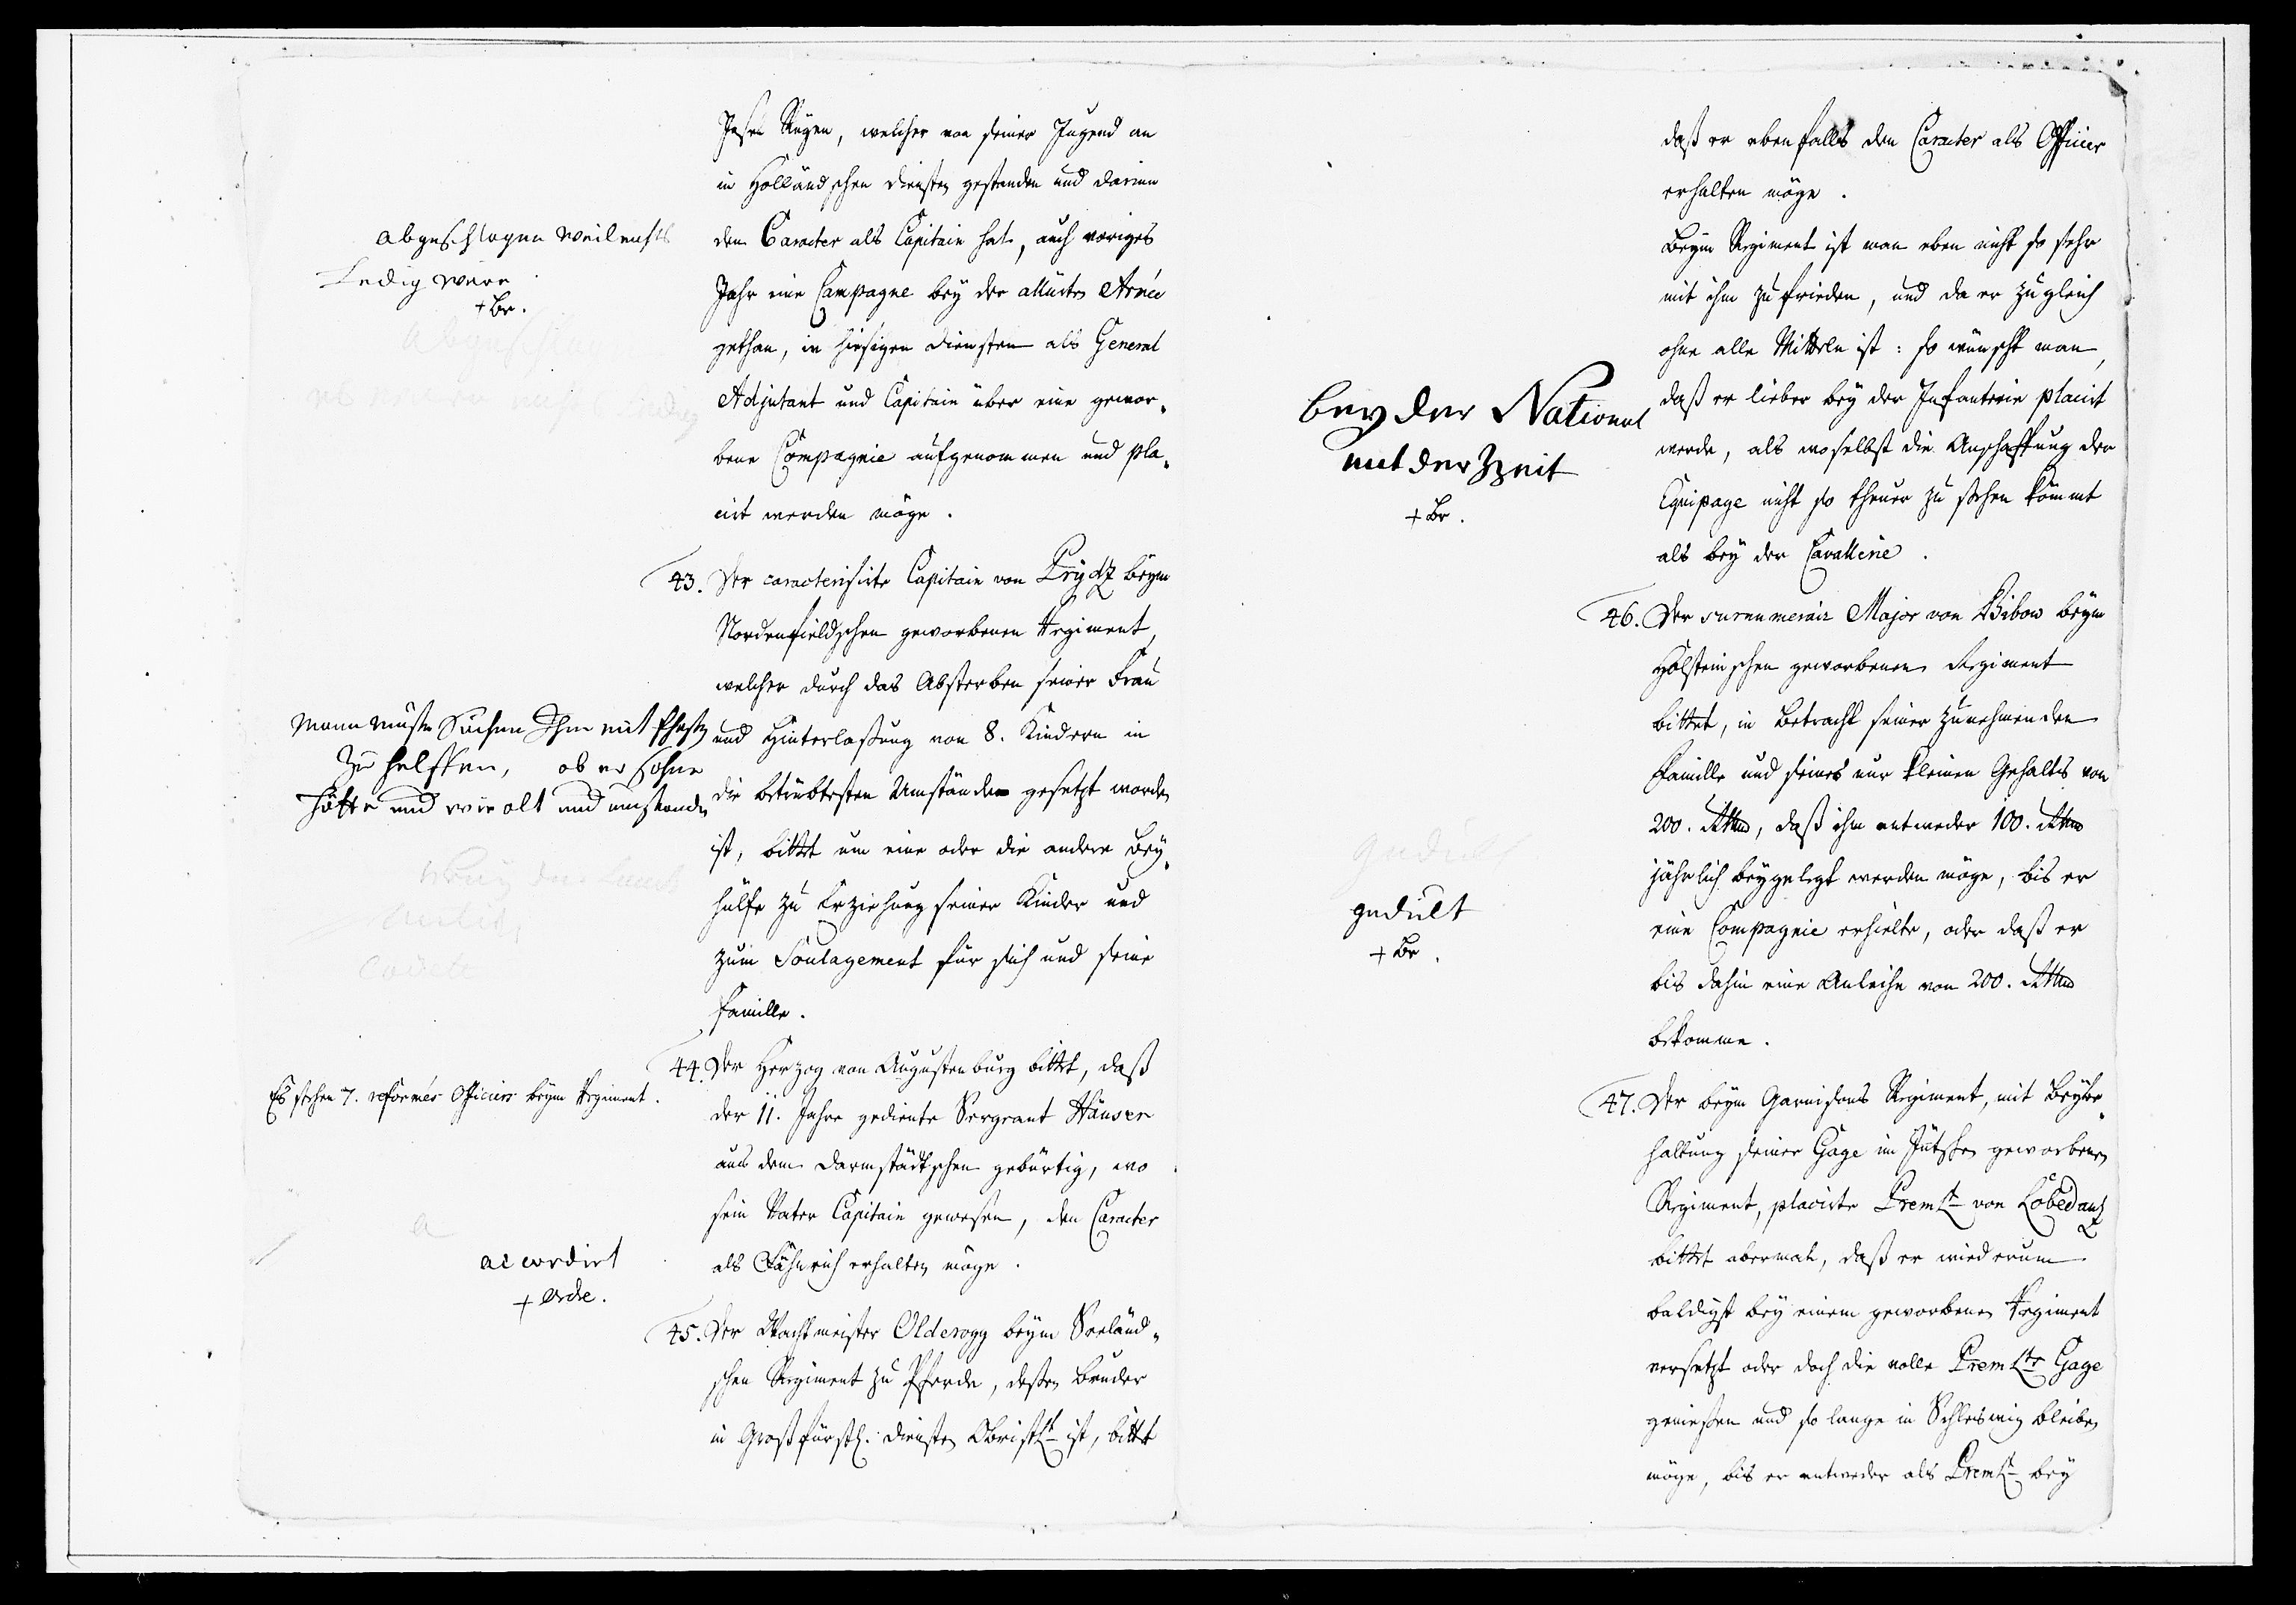 Insel Rügen, welcher von seiner Jugend an
in Holländschen Diensten gestanden und darinn
den Caracter als Capitain hat, auch voriges
Jahr eine Campagne bey der alliirten Armée
gethan, in hiesigen Diensten als General
Adjutant und Capitain über eine gewor-
bene Compagnie aufgenommen und pla-
cirt werden möge.
abgeschlagen weil nichts
Ledig were
+ Br.
43. Der caracterisirte Capitain von Prydtz beym
Nordenfieldschen geworbenen Regiment,
welcher durch das Absterben seiner Frau
und Hinterlaßung von 8. Kindern in
die betrübtesten Umständen gesetzt worden
ist, bittet um eine oder die andere Bey-
hülfe zu Erziehung seiner Kinder und
zum Soulagement für sich und seine
Famille.
Mann muste suchen Ihm mit
zu helffen, ob er sohne
hätte und wie alt und umstanden
44. Der Herzog von Augustenburg bittet, daß
der 11. Jahre gediente Sergeant Hänsen
aus dem Darmstädtschen gebürtig, wo
sein Vater Capitain gewesen, den Caracter
als Fähnrich erhalten möge.
Es stehen 7. reformés Officiers beym Regiment.
accordirt
+ Ordre.
45. Der Wachtmeister Olderogg beym Seeländ-
schen Regiment zu Pferde, deßen Bruder
in Großfürstl. Diensten Obristlt ist, bittet
daß er ebenfalls den Caracter als Officier
erhalten möge.
Beym Regiment ist man eben nicht so sehr
mit ihm zufrieden, und da er zugleich
ohne alle Mitteln ist: so wünscht man,
daß er lieber bey der Infanterie placirt
werde, als woselbst die Anschaffung der
Equipage nicht so theuer zu stehen kömmt
als bey der Cavallerie.
bey der National
mit der Zeit
+ Br.
46. Der surnumerair Major von Bibow beym
Holsteinschen geworbenen Regiment
bittet, in Betracht seiner zunehmenden
Famille und seines nur kleinen Gehalts von
200. Rthlr, daß ihm entweder 100. Rthlr
jährlich beygelegt werden möge, bis er
eine Compagnie erhielte, oder daß er
bis dahin eine Anleihe von 200. Rthlr
bekomme.
gedult
+ Br.
47. Der beym Garnisons Regiment, mit Beybe-
haltung seiner Gage im Jütschen geworbenen
Regiment, placirte Premlt von Lobedantz
bittet abermal, daß er wiederum
baldigst bey einem geworbenen Regiment
versetzt oder doch die volle Prem Ltn Gage
genießen und so lange in Schleswig bleiben
möge, bis er entweder als Premlt bey